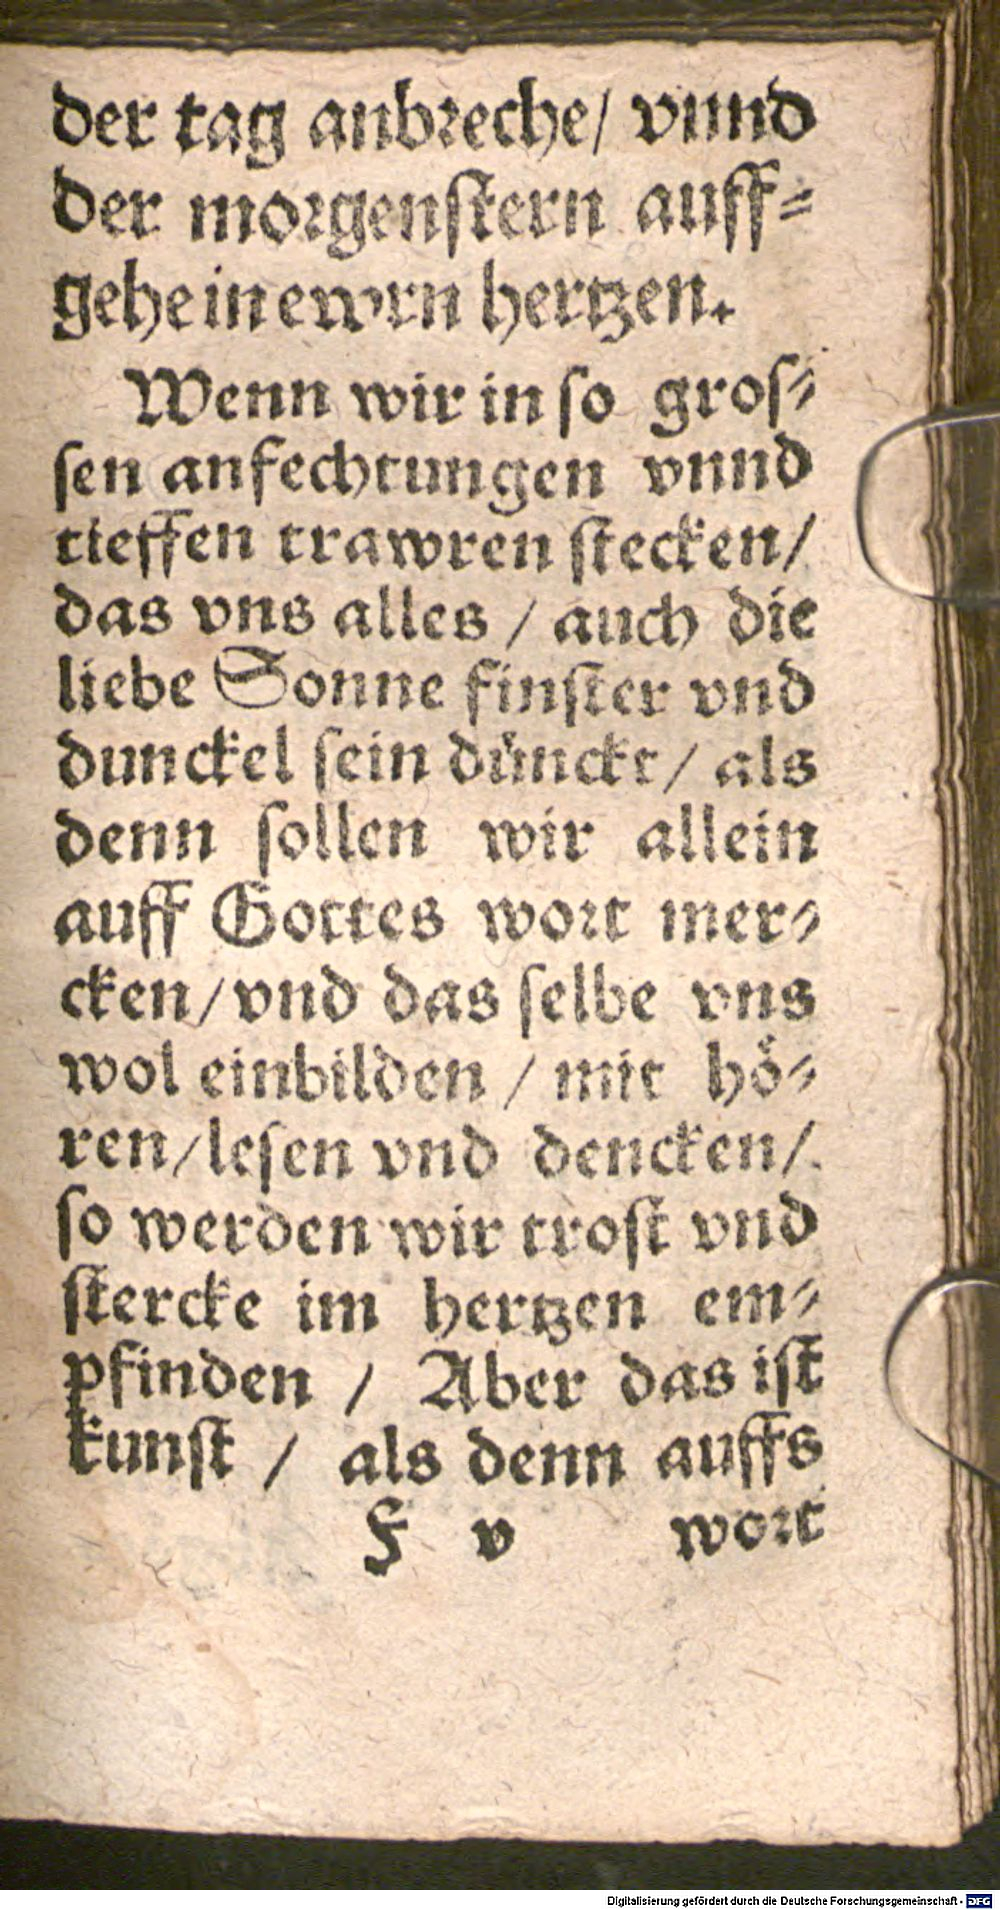 der tag anbreche/ vnnd
der morgenſtern auff⸗
gehe in ewrn hertzen.
Wenn wir in ſo groſ⸗
ſen anfechtungen vnnd
tieffen trawren ſtecken/
das vns alles / auch die
liebe Sonne finſter vnd
dunckel ſein dünckt / als
denn ſollen wir allein
auff Gottes wort mer⸗
cken/ vnd das ſelbe vns
wol einbilden / mit hö⸗
ren/ leſen vnd dencken/
ſo werden wir troſt vnd
ſtercke im hertzen em⸗
pfinden / Aber das iſt
kunſt / als denn auffs
F v wort
Digitalisierung gefördert durch die Deutsche Forschungsgemeinschaft - DFG